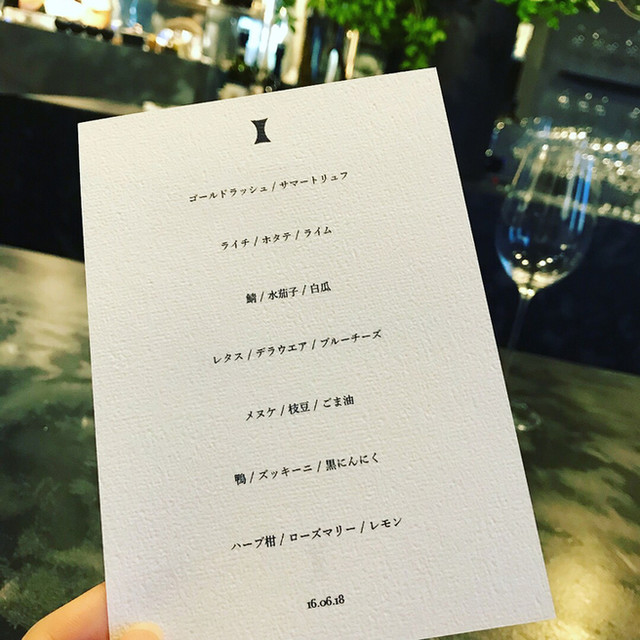 ゴールドラッシュ / サマートリュフ
ライチ / ホタテ / ライム
鯖 / 水茄子 / 白瓜
レタス / デラウエア / ブルーチーズ
メヌケ / 枝豆 / ごま油
鴨 / ズッキーニ / 黒にんにく
ハーブ柑 / ローズマリー / レモン
16.06.18